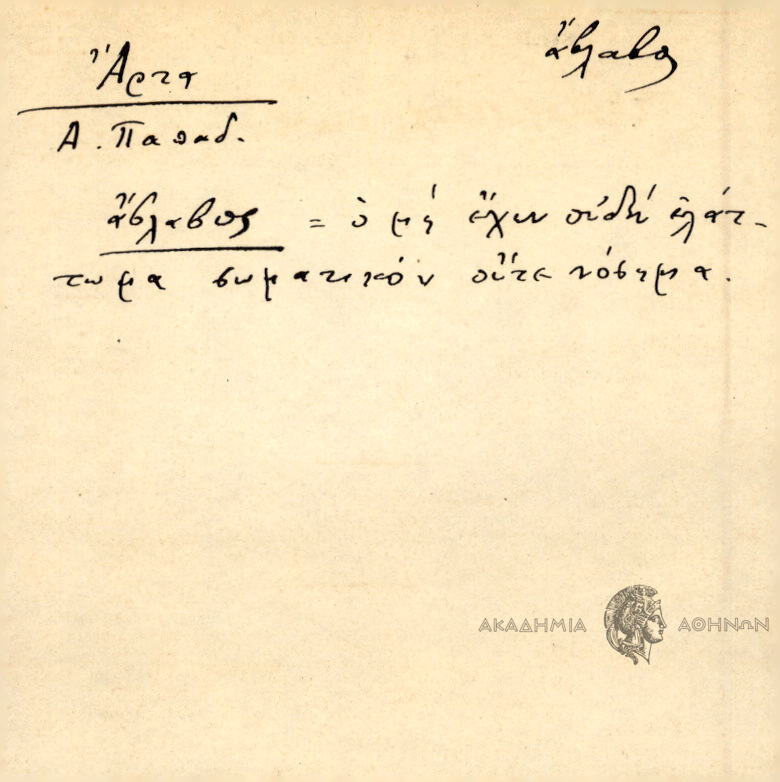 ἄβλαβος
Ἄρτα
Α. Παπαδ.
ἄβλαβος = ὁ μὴ ἔχων οὐδὲν ἐλάτ-
τωμα σωματικόν οὔτε νόσημα.
ΑΚΑΔΗΜΙΑ ΑΘΗΝΩΝ